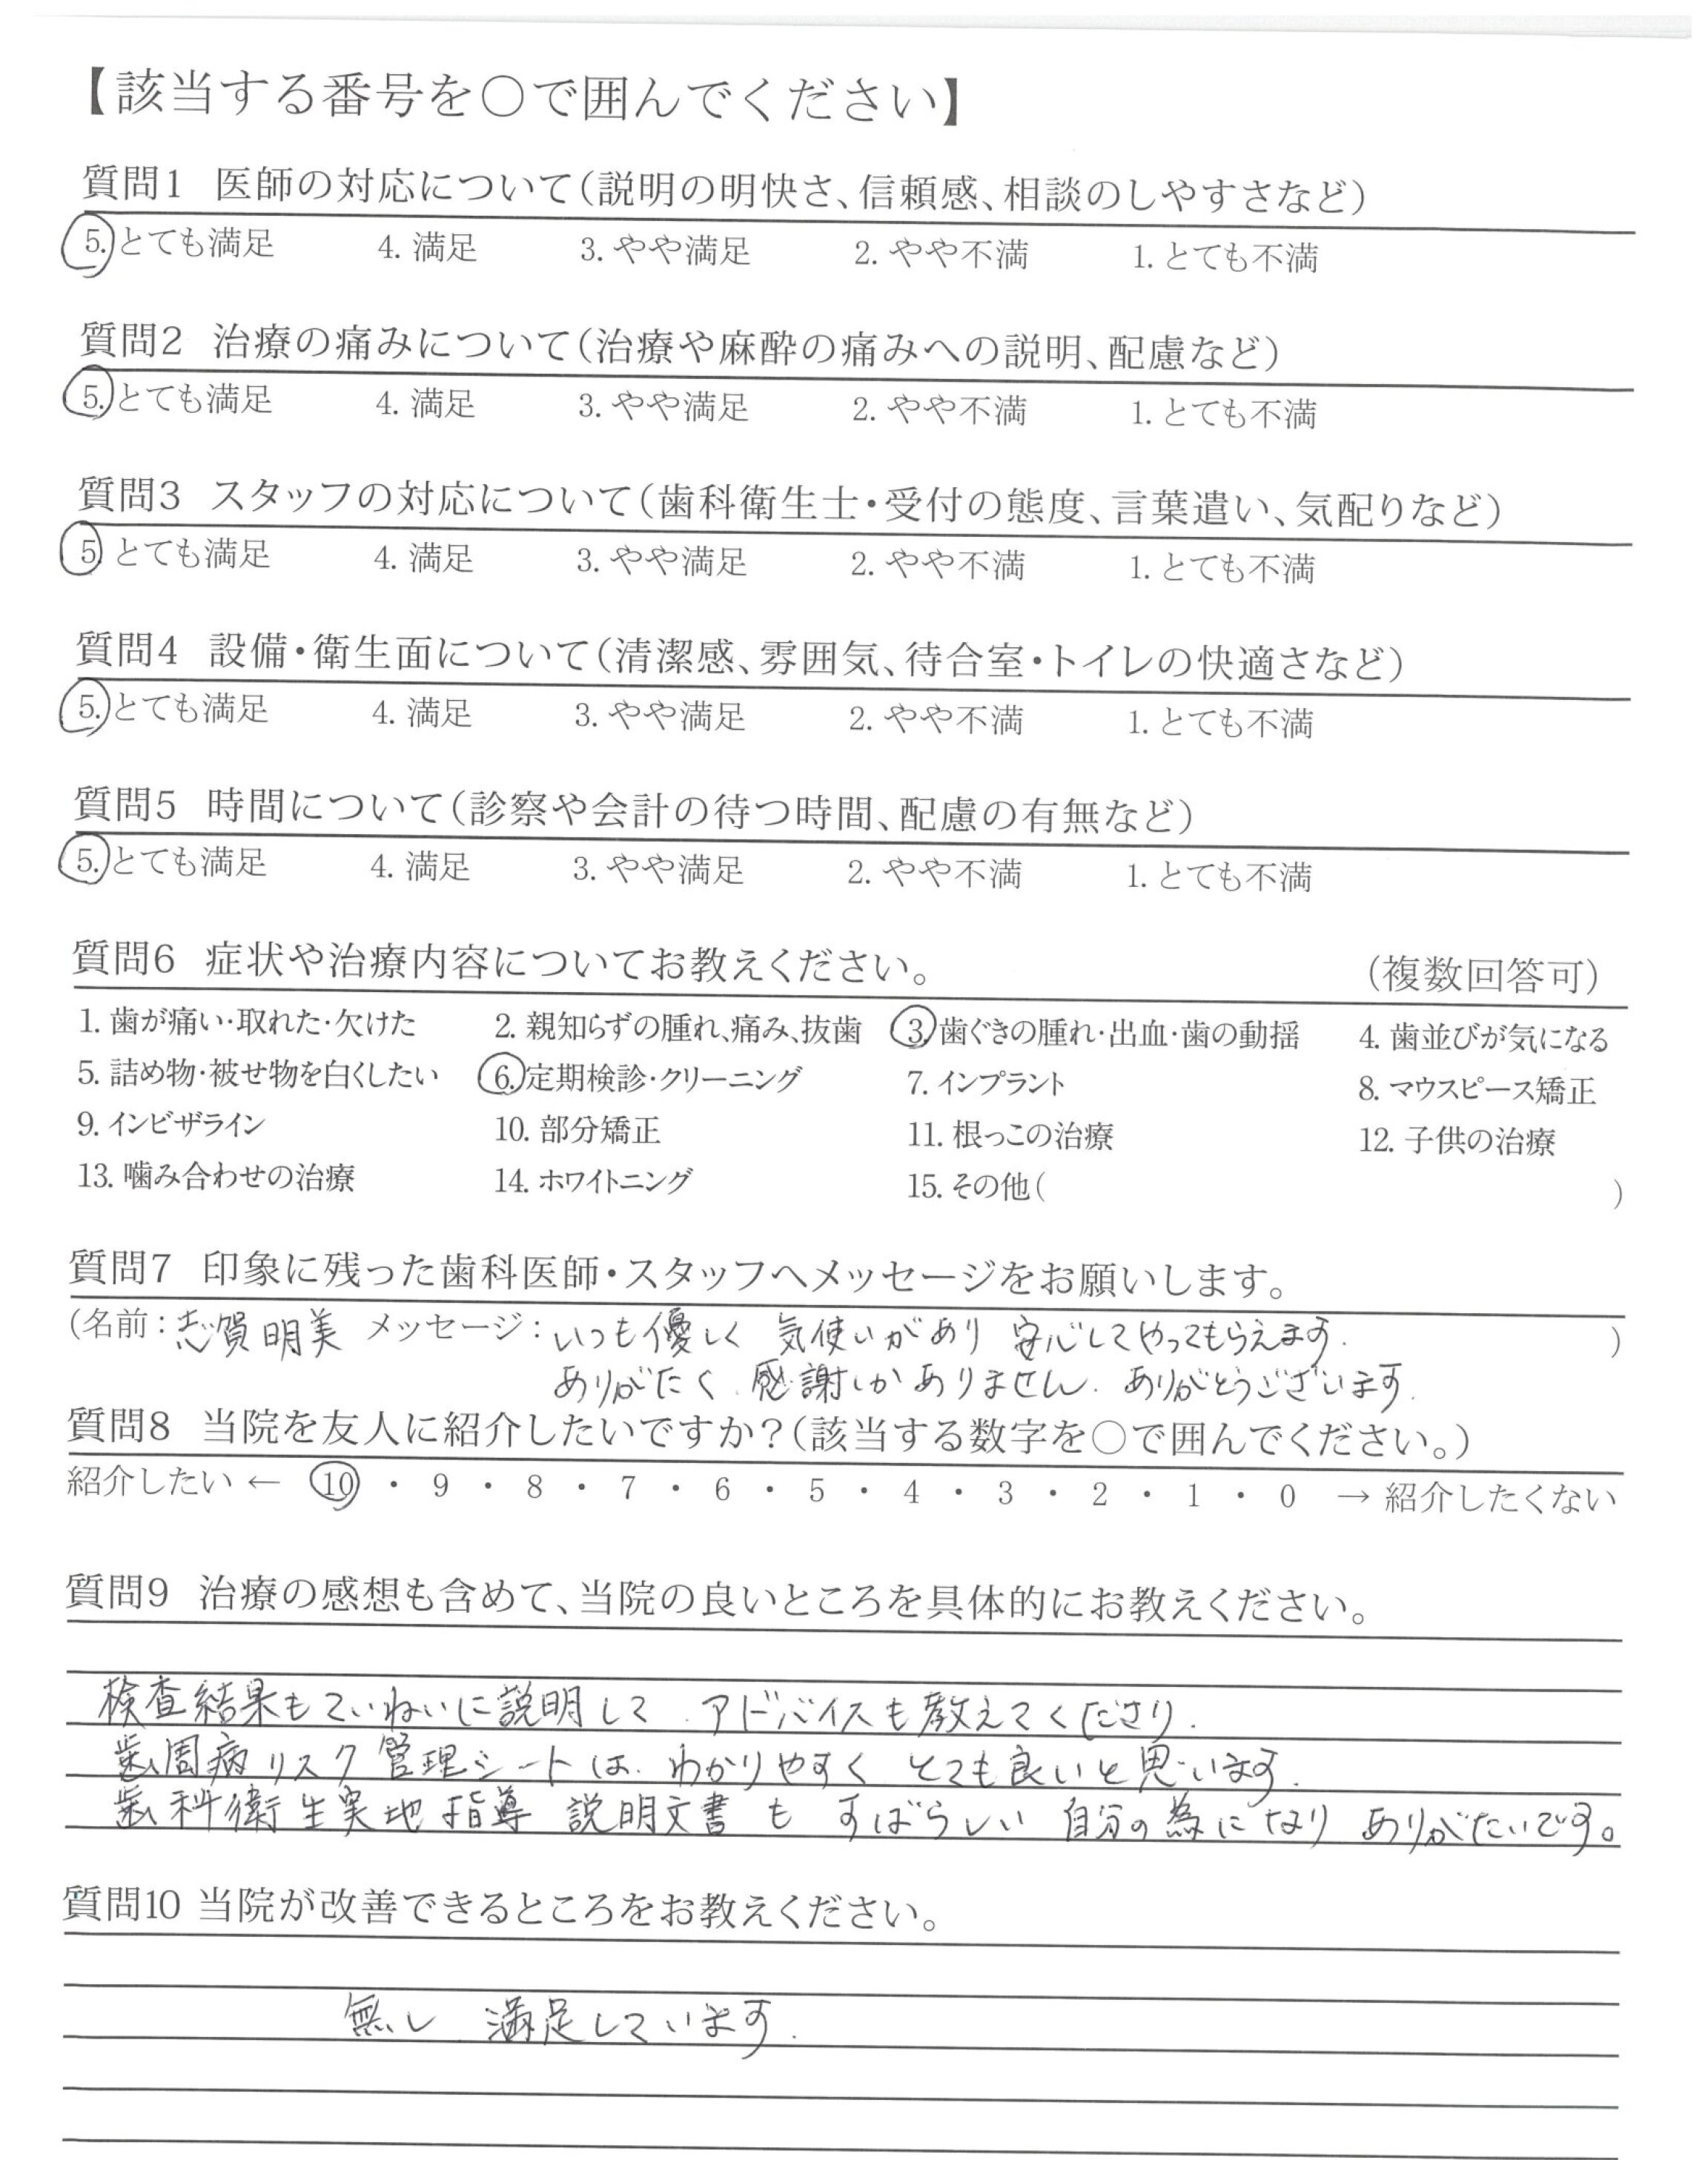 【該当する番号を○で囲んでください】
質問1 医師の対応について(説明の明快さ、信頼感、相談のしやすさなど)
5. とても満足 4. 満足 3. やや満足 2. やや不満 1. とても不満
質問2 治療の痛みについて(治療や麻酔の痛みへの説明、配慮など)
5. とても満足 4. 満足 3. やや満足 2. やや不満 1. とても不満
質問3 スタッフの対応について(歯科衛生士・受付の態度、言葉遣い、気配りなど)
5 とても満足 4. 満足 3. やや満足 2. やや不満 1. とても不満
質問4 設備・衛生面について(清潔感、雰囲気、待合室・トイレの快適さなど)
5. とても満足 4. 満足 3. やや満足 2. やや不満 1. とても不満
質問5 時間について(診察や会計の待つ時間、配慮の有無など)
5. とても満足 4. 満足 3. やや満足 2. やや不満 1. とても不満
質問6 症状や治療内容についてお教えください。 (複数回答可)
1. 歯が痛い・取れた・欠けた 2. 親知らずの腫れ、痛み、抜歯 3. 歯ぐきの腫れ・出血・歯の動揺 4. 歯並びが気になる
5. 詰め物・被せ物を白くしたい 6. 定期検診・クリーニング 7. インプラント 8. マウスピース矯正
9. インビザライン 10. 部分矯正 11. 根っこの治療 12. 子供の治療
13. 噛み合わせの治療 14. ホワイトニング 15. その他( )
質問7 印象に残った歯科医師・スタッフへメッセージをお願いします。
(名前:志賀明美 メッセージ:いつも優しく 気使いがあり 安心してやってもらえます. )
ありがたく、感謝しかありません. ありがとうございます.
質問8 当院を友人に紹介したいですか?(該当する数字を○で囲んでください。)
紹介したい ← 10 ・ 9 ・ 8 ・ 7 ・ 6 ・ 5 ・ 4 ・ 3 ・ 2 ・ 1 ・ 0 → 紹介したくない
質問9 治療の感想も含めて、当院の良いところを具体的にお教えください。
検査結果もていねいに説明して、アドバイスも教えてくださり.
歯周病リスク管理シートは、わかりやすく とても良いと思います.
歯科衛生実地指導 説明文書 も すばらしい 自分の為になり ありがたいです。
質問10 当院が改善できるところをお教えください。
無し 満足しています.